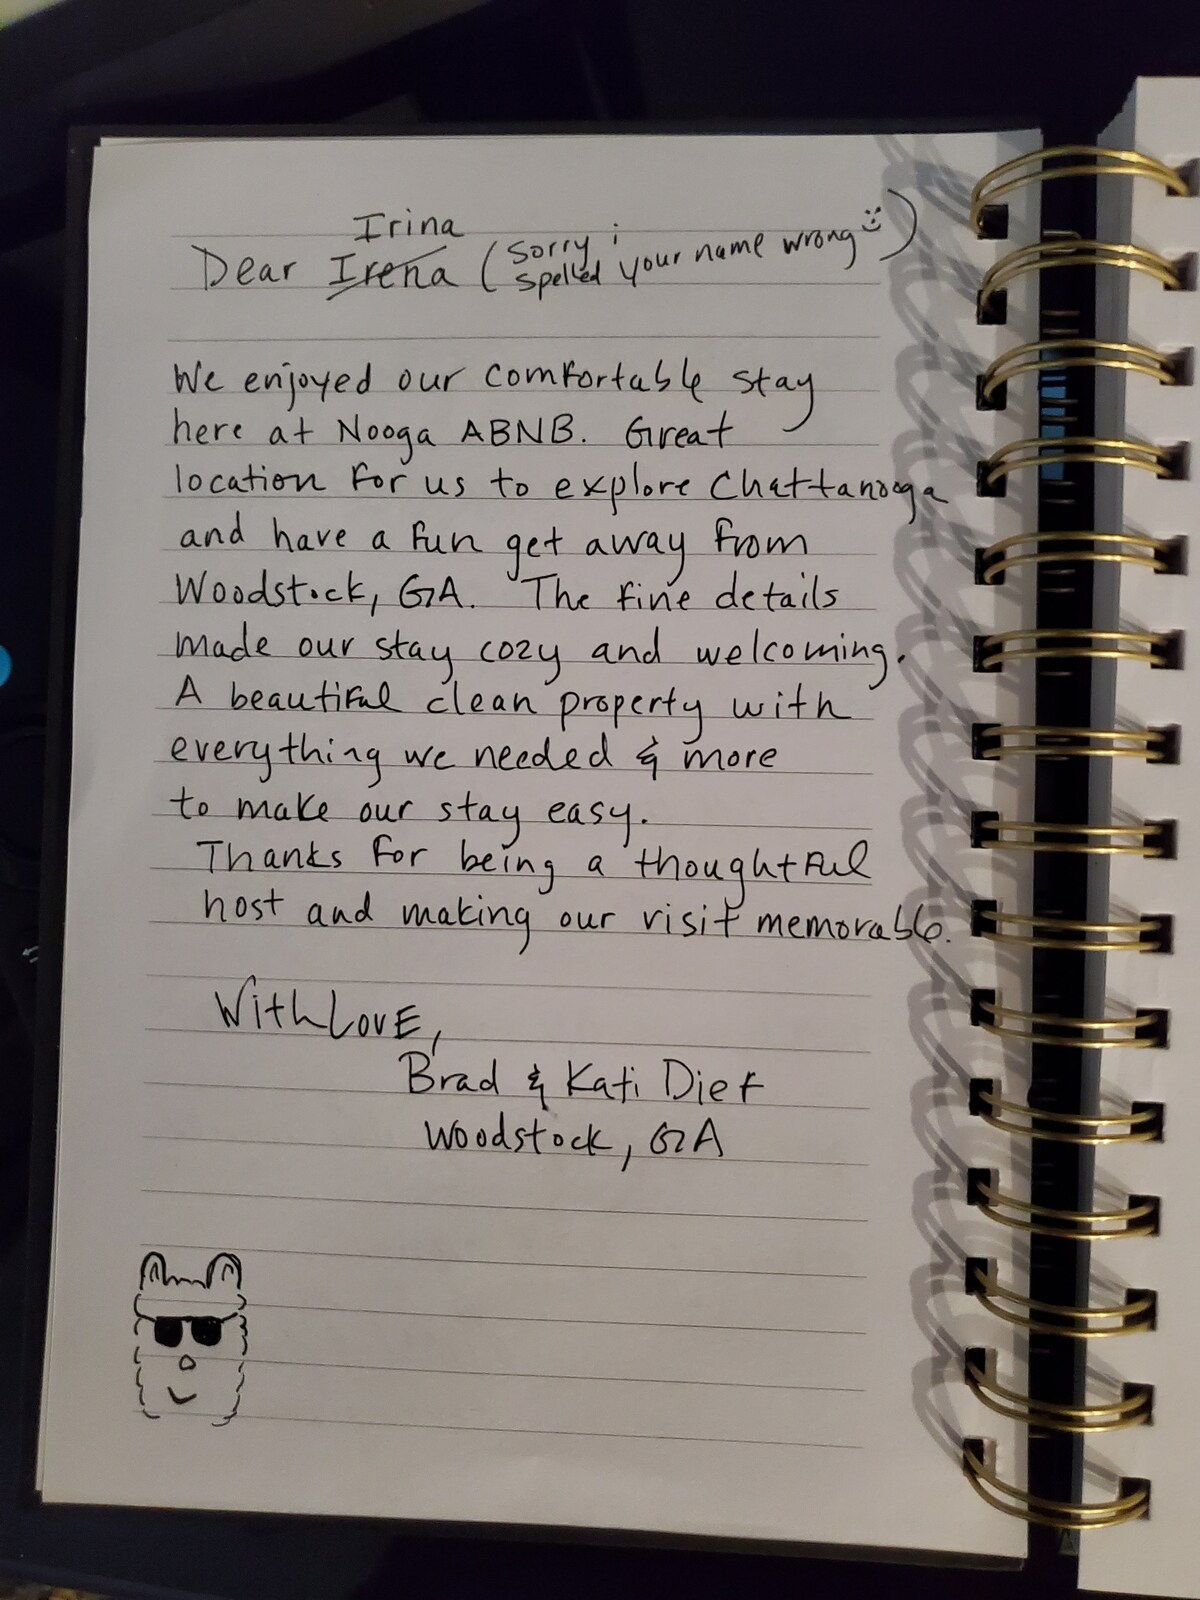 Irina
Dear Irena (Sorry i spelled your name wrong :)
We enjoyed our comfortable stay
here at Nooga ABNB. Great
location for us to explore Chattanooga
and have a fun get away from
Woodstock, GA. The fine details
made our stay cozy and welcoming.
A beautiful clean property with
everything we needed & more
to make our stay easy.
Thanks for being a thoughtful
host and making our visit memorable.
With Love,
Brad & Kati Dief
Woodstock, GA